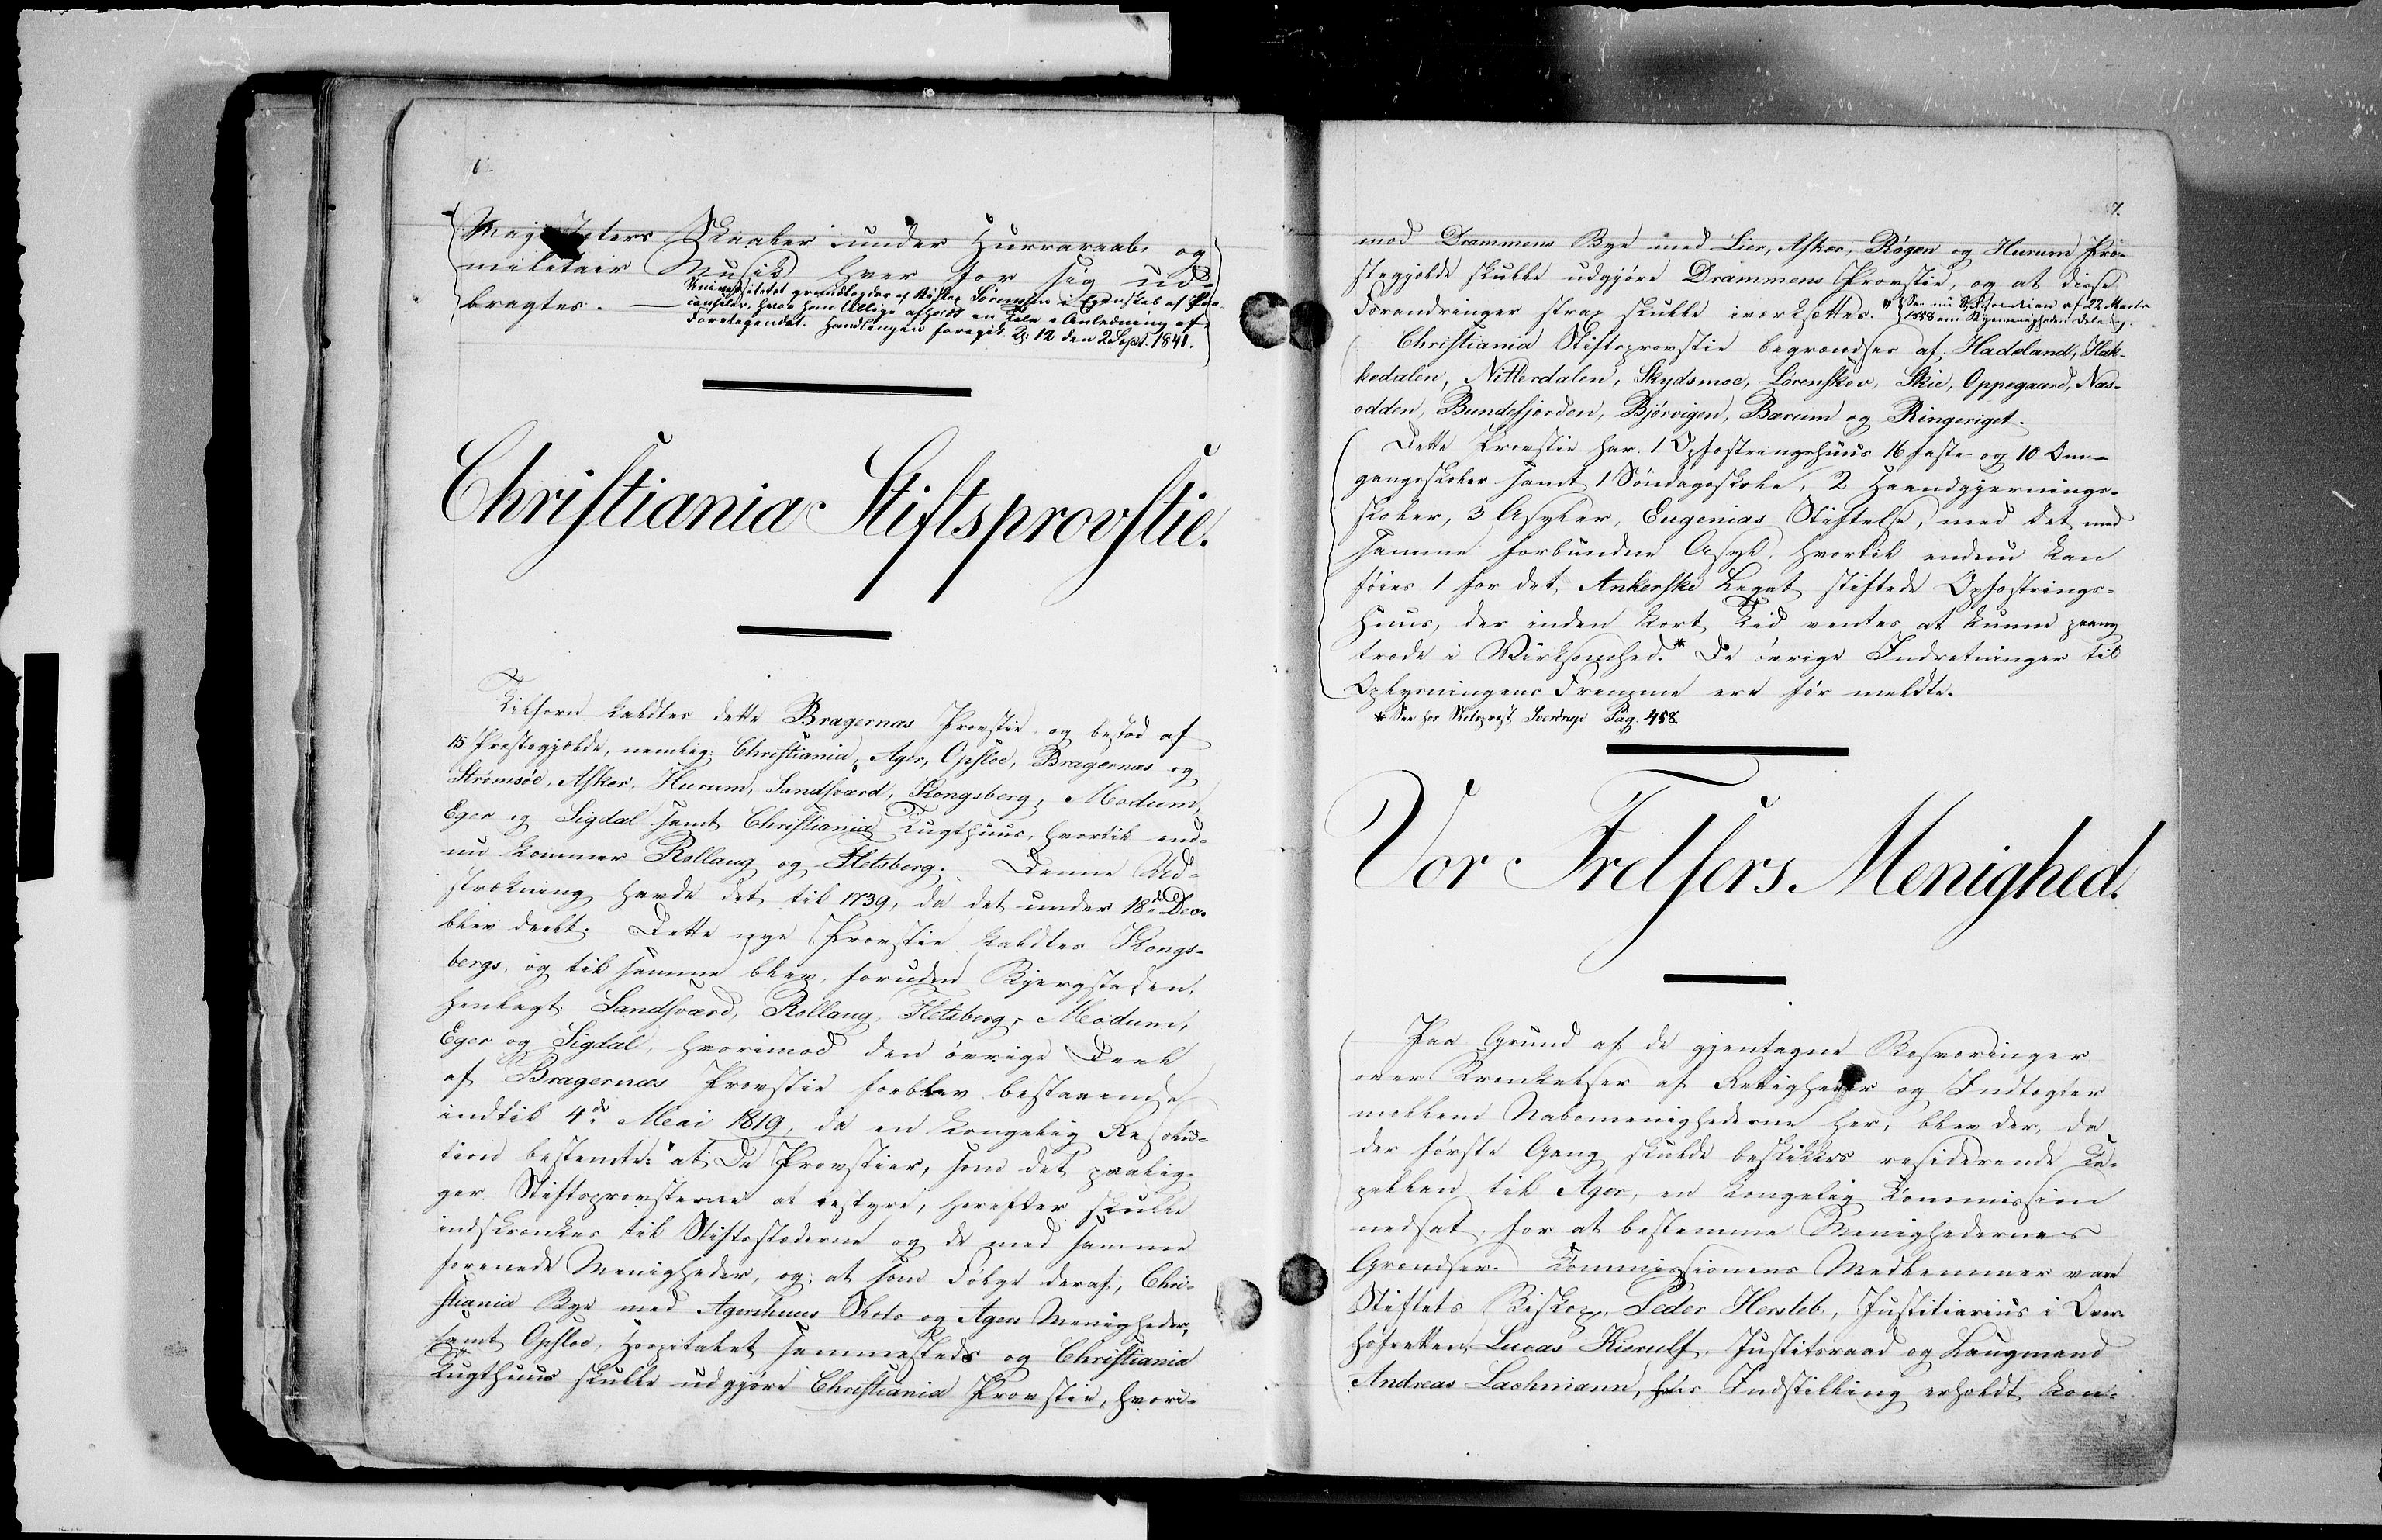 6.
Majestæters Skaaler under Hurraraab og
militair Musik hver for sig ud-
bragtes. —
Universitetet grundlagdes af Biskop Sörenssen i Egenskab af Pro-
canseler, hvor han tillige afholdt en Tale i Anledning af
Foretagendet. Handlingen foregik Kl. 12 den 2 Sept. 1841.
Christiania Stiftsprovstie.
Tilforn kaldtes dette Bragernæs Provstie og bestod af
15 Præstegjælde, nemlig: Christiania, Ager, Opsloe, Bragernæs og
Strömsöe, Asker, Hurum, Sandsværd, Kongsberg, Modum,
Eger og Sigdal samt Christiania Tugthuus, hvortil end-
nu kommer Rollaug og Fletsberg. Denne Ud-
strækning havde det til 1739, da det under 18de Dec.
blev deelt. Dette nye Provstie kaldtes Kongs-
bergs, og til samme blev, foruden Bjergstaden,
henlagt: Sandsværd, Rollaug, Fletsberg, Modum,
Eger og Sigdal, hvorimod den övrige Deel
af Bragernæs Provstie forblev bestaaende
indtil 4de Mai 1819, da en kongelig Resolu-
tion bestemte: "at De Provstier, som det paalig-
ger Stiftsprovsterne at bestyre, herefter skulle
indskrænkes til Stiftsstæderne og de med samme
forenede Menigheder, og at som Fölge deraf, Chri-
stiania Bye med Agershuus Slots og Agers Menigheder,
samt Opsloe, Hospitalet sammesteds og Christiania
Tugthuus skulle udgjöre Christiania Provstie, hvori-
7.
mod Drammens Bye med Lier, Asker, Rögen og Hurum Præ-
stegjælde skulle udgjöre Drammens Provstie, og at disse
Forandringer strax skulle iværksættes."
See nu Resolution af 22 Marts
1858 om Byemenighedens Deling.
Christiania Stiftsprovstie begrændses af: Hadeland, Hak-
kedalen, Nitterdalen, Skydsmoe, Lörenskov, Skie, Oppegaard, Næs-
odden, Bundefjorden, Björvigen, Bærum og Ringeriget.
Dette Provstie har 1 Opfostringshuus 16 faste og 10 Om-
gangsskoler samt 1 Söndagsskole, 2 Haandgjernings-
skoler, 3 Asyler, Eugenias Stiftelse, med det med
samme forbundne Asyl, hvortil endnu kan
föies 1 for det Ankerske Legat stiftede Opfostrings-
huus, der inden kort Tid ventes at kunne
træde i Virksomhed.* De övrige Indretninger til
Oplysningens Fremme ere för meldte.
* See hos Stiftsprovst Sverdrup Pag. 458
Vor Frelsers Menighed.
Paa Grund af de gjentagne Besværinger
over Krænkelser af Rettigheder og Indtægter
mellem Nabomenighederne her, blev der, da
der förste Gang skulde beskikkes residerende Ka-
pellan til Ager, en kongelig Kommission
nedsat, for at bestemme Menighedernes
Grændser. Kommissionens Medlemmer vare
Stiftets Biskop, Peder Hersleb, Justitiarius i Over-
hofretten, Lucas Kierulf, Justitsraad og Laugmand
Andreas Lachmann, hvis Indstilling erholdt kon-